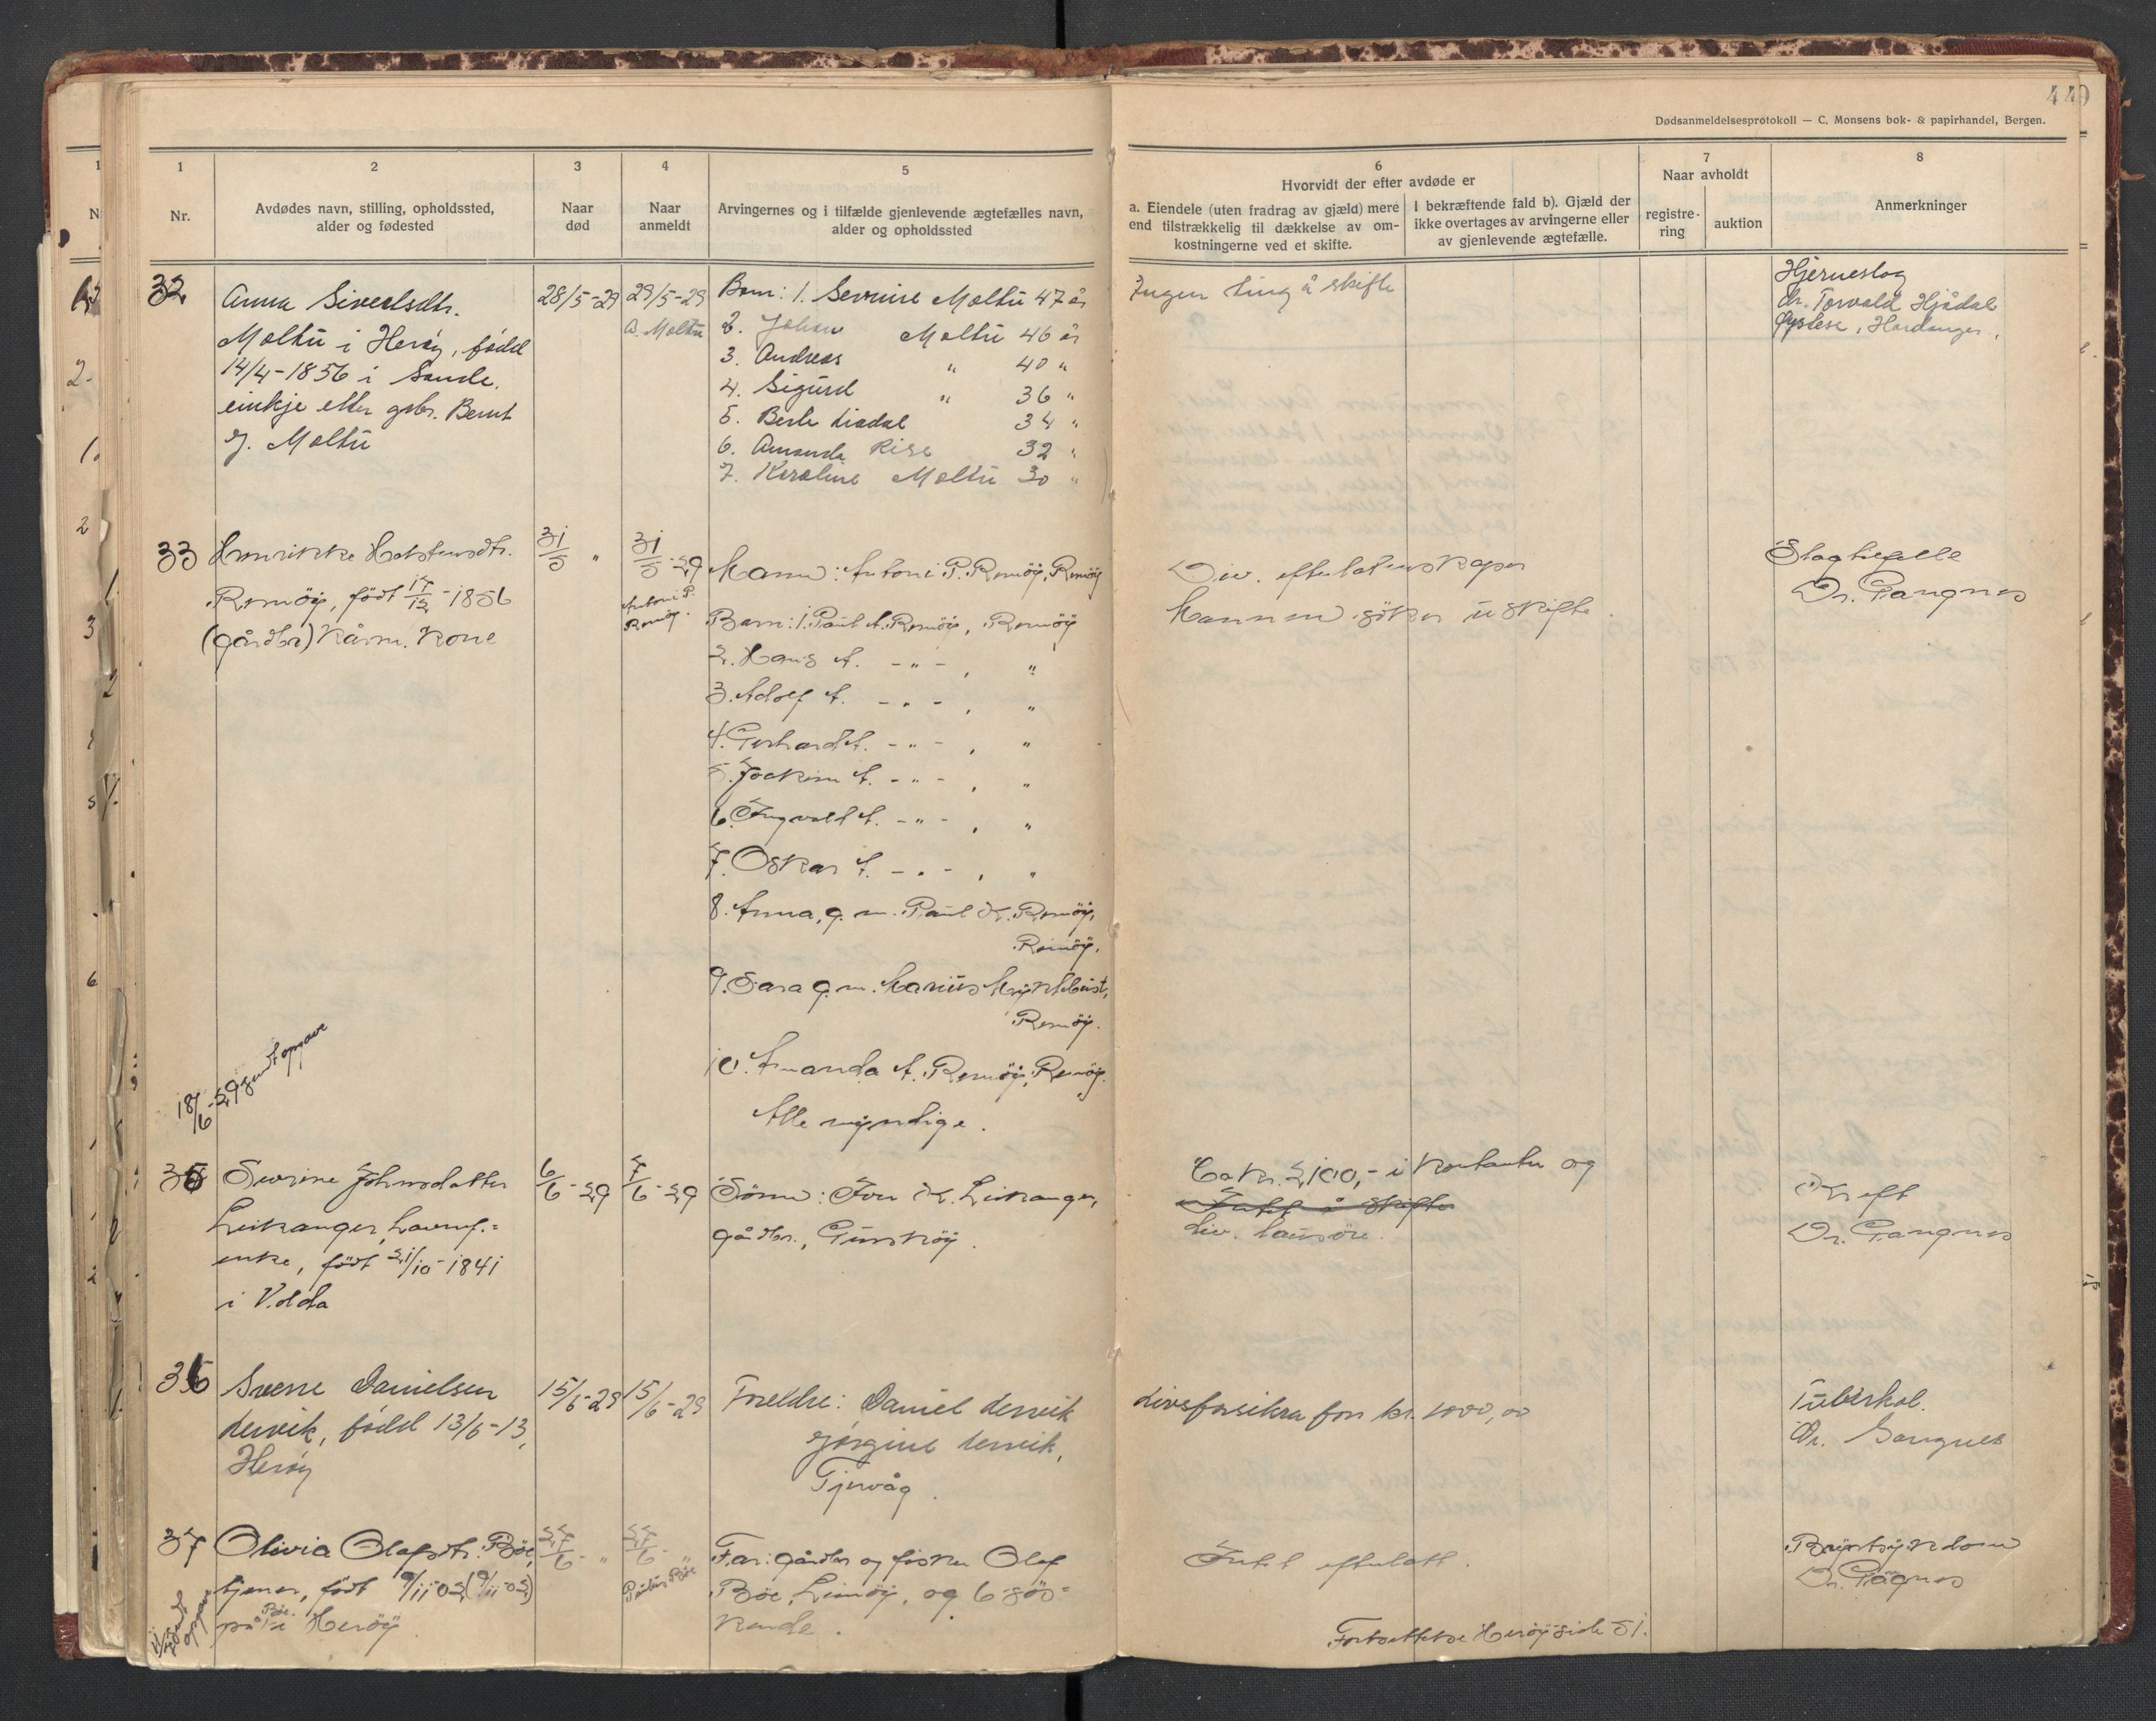 440
Dødsanmeldelsesprotokoll — C. Monsens bok- & papirhandel, Bergen.
1
Nr.
2
Avdødes navn, stilling, opholdssted,
alder og fødested
3
Naar
død
4
Naar
anmeldt
5
Arvingernes og i tilfælde gjenlevende ægtefælles navn,
alder og opholdssted
6
Hvorvidt der efter avdøde er
a. Eiendele (uten fradrag av gjæld) mere
end tilstrækkelig til dækkelse av om-
kostningerne ved et skifte.
I bekræftende fald b). Gjæld der
ikke overtages av arvingerne eller
av gjenlevende ægtefælle.
7
Naar avholdt
registre-
ring
auktion
8
Anmerkninger
32
Anna Sivertsdtr.
Moltu i Herøy, fødd
14/4-1856 i Sande.
einkje etter gbr. Bernt
J. Moltu
28/5-29
29/5-29
A. Moltu
Born: 1. Severine Moltu 47 år
2. Johan Moltu 46 år
3. Andreas " 40 "
4. Sigurd " 36 "
5. Berte Liadal 34 "
6. Amanda Rise 32 "
7. Karoline Moltu 30 "
Ingen ting å skifte
Hjerneslag
dr. Torvald Hjådal
Øystese, Hardanger.
33
Henrikke
Remöy, født 17/12-1856
(gårdbr) Kårm. Kone
31/5 "
31/5-29
Antoni P.
Remöy.
Mann: Antoni P. Remöy, Remöy
Barn: 1. Paul A. Remöy, Remöy
2. Hans A. -"-, "
3. Adolf A. -"-, "
4. Gerhard A. -"-, "
5. Joakim A. -"-, "
6. Ingvald A. -"-, "
7. Oskar A. -"-, "
8. Anna, g. m. Paul K. Remöy,
Remöy.
9. Sara g. m. Marius Myklebust,
Remöy.
10. Amanda A. Remöy, Remöy.
Alle myndige.
Div. efterlatenskaper
Mannen söker uskifte.
Slagtilfelle
Dr. Gangnes
18/6-29 sendt opgave
35
Sevrine Johnsdatter
Leikanger,
enke, født 21/10-1841
i Volda
6/6-29
7/6-29
Sönn: Iver K. Leikanger,
gårdbr., Gurskøy.
Ca kr. 2,100,- i kontanter og
Intet å skifte
div. lausöre.
Kreft
Dr. Gangnes
36
Sverre Danielsen
Lervik, fødd 13/6-13,
Herøy
15/6-29
15/6-29
Foreldre: Daniel Lervik
Jørgine Lervik,
Tjørvåg.
Livsforsikra for kr. 1000,00
Tuberkol.
Dr. Gangnes
37
Olivia Olafsdtr. Böe,
tjener, født 9/11-02 (9/11-02)
på Böe i Heröy
27/6 "
27/6 "
Paulus Böe
Far: gårdbr og fisker Olaf
Böe, Leinöy, og 6 søs-
kende.
Intet efterlatt.
Brystsykdom
Dr. Gagnes
sendt
opgave
Fortsettelse Heröy side 51.